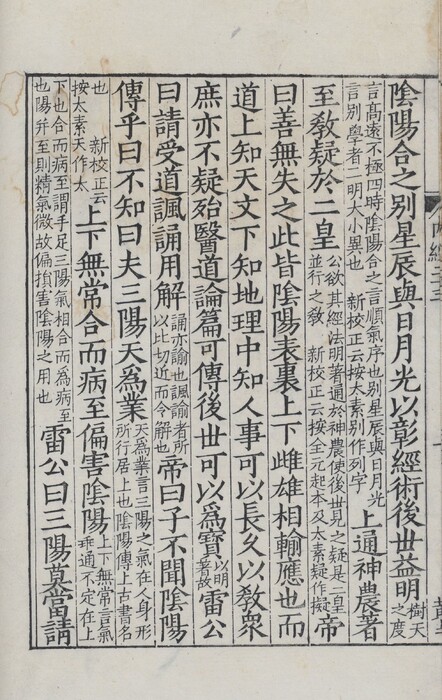 陰陽合之別星辰與日月光以彰經術後世益明樹天之度
言高遠不極四時陰陽合之言順氣序也別星辰與日月光言別學者二明大小異也 新校正云按太素別作列字上通神農著
至教疑於二皇公欲其經法明著通於神農使後世見之疑是二皇並行之教 新校正云按全元起本及太素疑作擬帝
曰善無失之此皆陰陽表裏上下雌雄相輸應也而
道上知天文下知地理中知人事可以長久以教衆
庶亦不疑殆醫道論篇可傳後世可以爲寶以明著故雷公
曰請受道諷誦用解誦亦諭也諷諭者所以比切近而令解也帝曰子不聞陰陽
傳乎曰不知曰夫三陽天爲業天爲業言三陽之氣在人身形所行居上也陰陽傳上古書名
也 新校正云按太素天作太上下無常合而病至偏害陰陽上下無常言氣乖通不定在上
下也合而病至謂手足三陽氣相合而爲病至也陽并至則精氣微故偏損害陰陽之用也雷公曰三陽莫當請